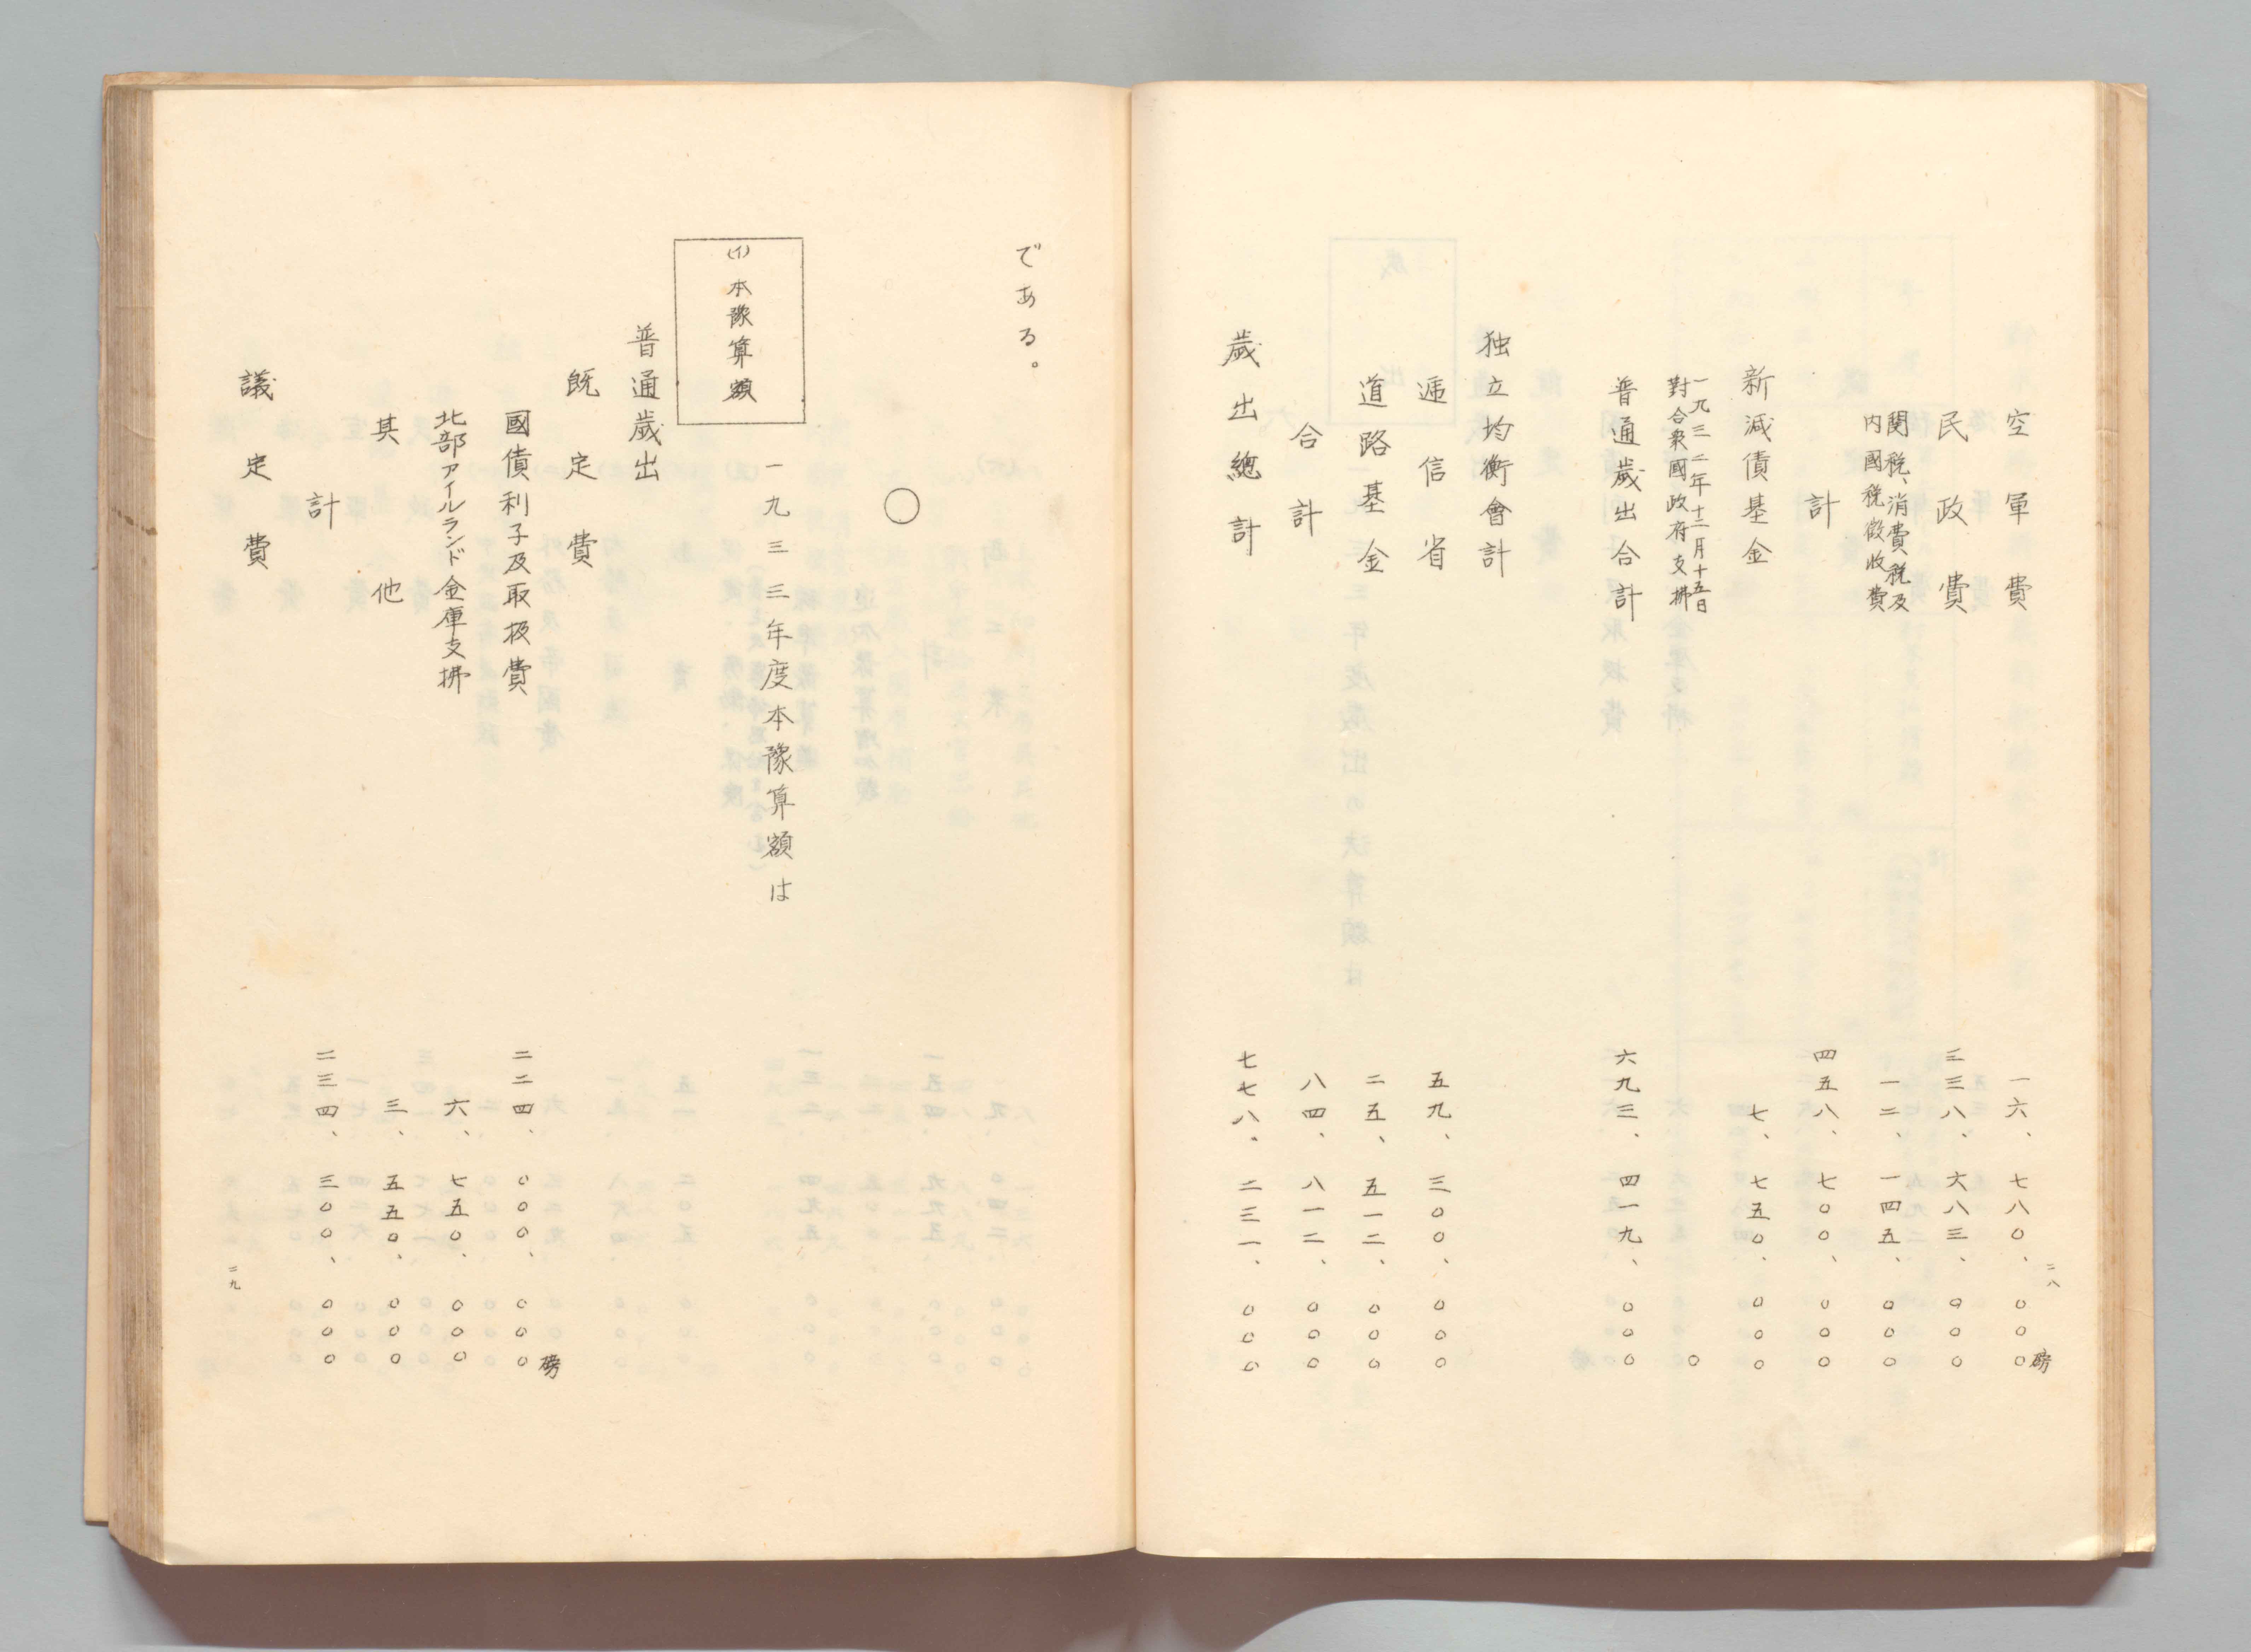 空軍費 一六、七八〇、〇〇〇磅
民政費 三三八、六八三、〇〇〇
関税、消費税及
内國税徴收費 一二、一四五、〇〇〇
計 四五八、七〇〇、〇〇〇
新減債基金 七、七五〇、〇〇〇
一九三二年十二月十五日
對合衆國政府支拂 〇
普通歳出合計 六九三、四一九、〇〇〇
独立均衡會計
逓信省 五九、三〇〇、〇〇〇
道路基金 二五、五一二、〇〇〇
合計 八四、八一二、〇〇〇
歳出總計 七七八、二三一、〇〇〇
二八
である。
〇
(イ)本豫算額
一九三三年度本豫算額は
普通歳出
既定費
國債利子及取扱費 二二四、〇〇〇、〇〇〇磅
北部アイルランド金庫支拂 六、七五〇、〇〇〇
其他 三、五五〇、〇〇〇
計 二三四、三〇〇、〇〇〇
議定費
二九